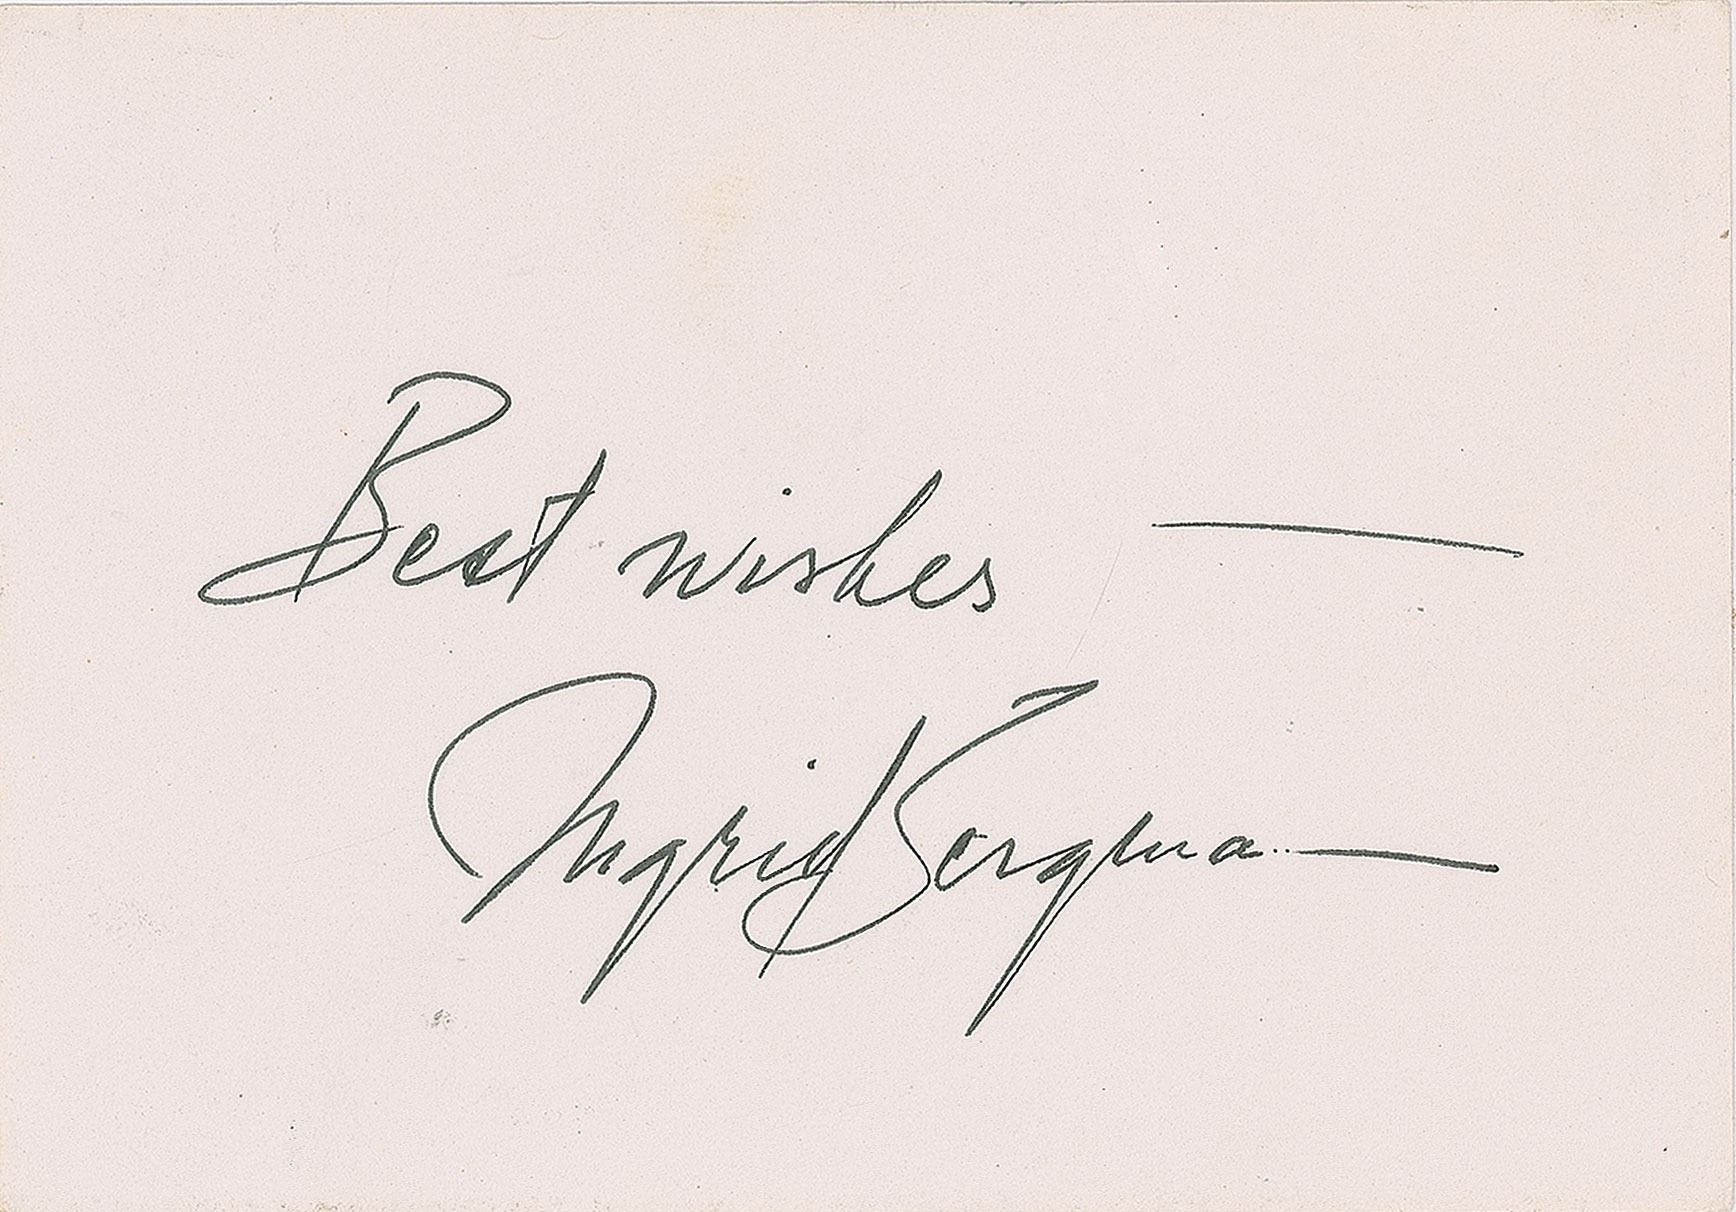 Best wishes —
Ingrid Bergman